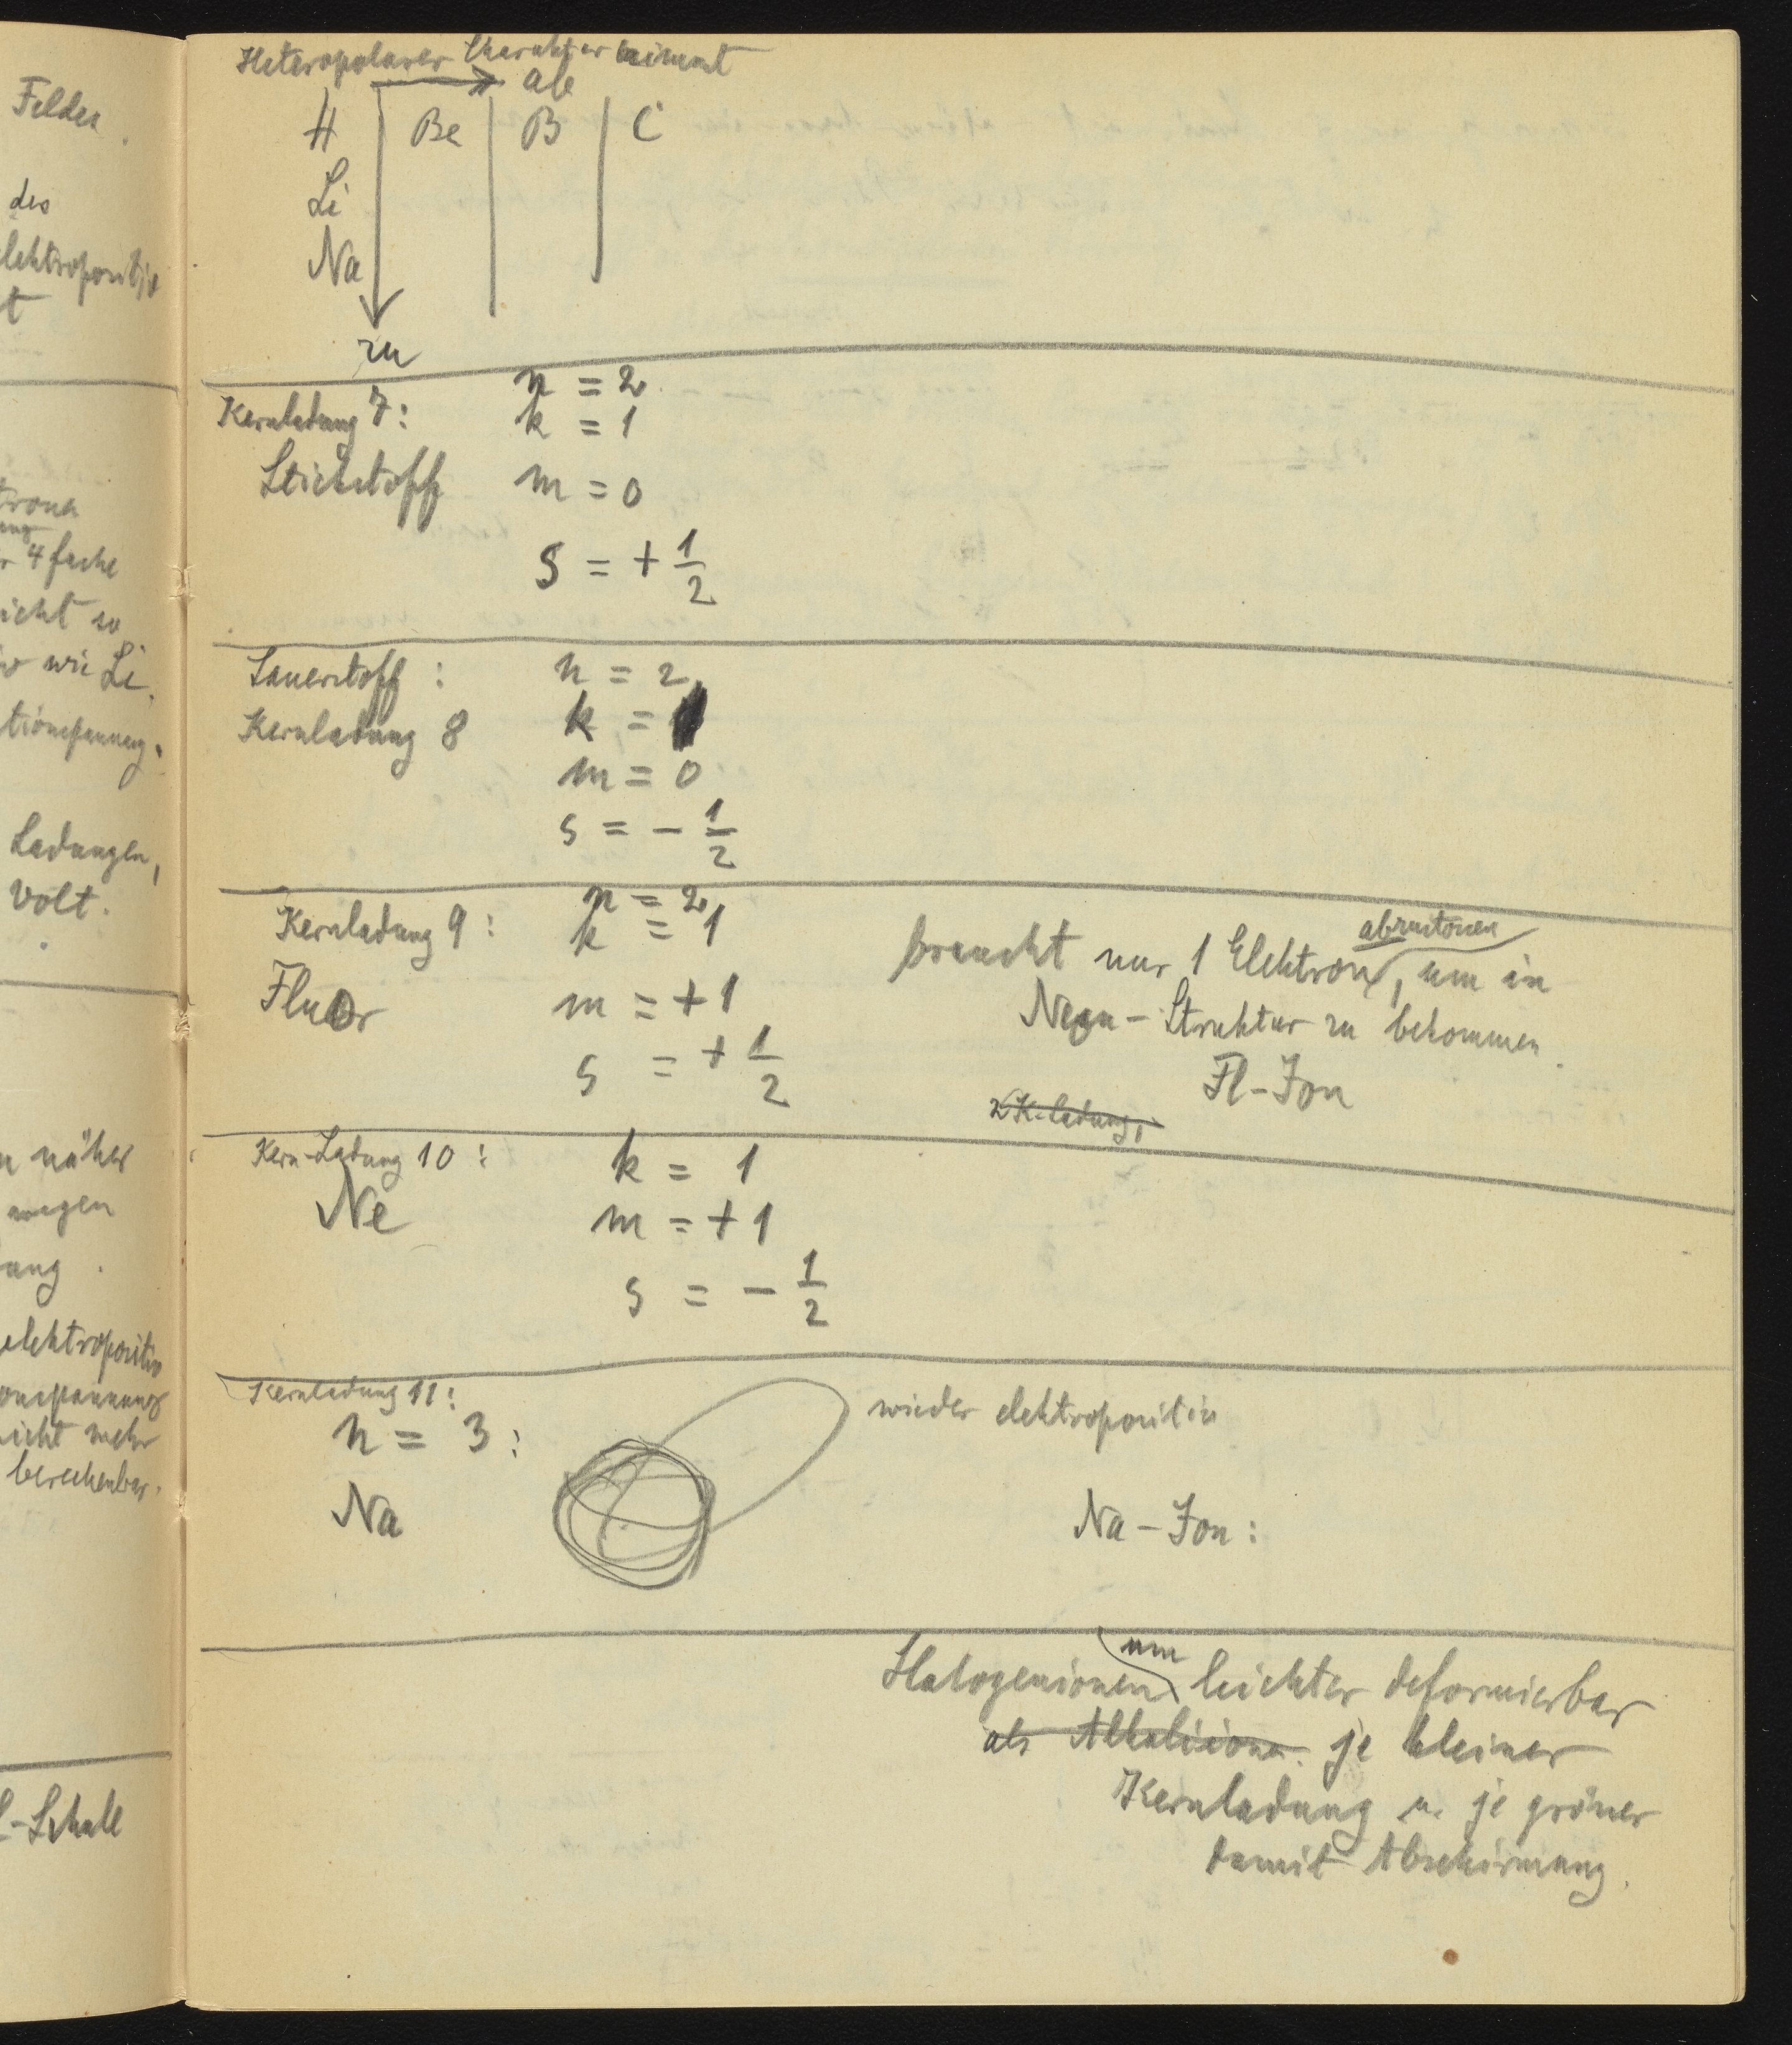 Felder.
des
elektropositiv
t
4 fache
icht so
wie Li.
Ladungen,
Volt.
näher
wegen
elektropositiv
icht mehr
berechenbar.
L-Schale
Heteropolarer Charakter nimmt
ab
H Be B C
Li
Na
zu
Kernladung 7: n = 2
k = 1
Stickstoff m = 0
s = + 1/2
Sauerstoff: n = 2
Kernladung 8 k = 1
m = 0
s = - 1/2
n = 2
Kernladung 9: k = 1
Fluor m = +1
s = + 1/2
abzustossen
braucht nur 1 Elektron, um in
Neon-Struktur zu bekommen.
Fl-Jon
K-ladung,
Kern-Ladung 10: k = 1
Ne m = +1
s = - 1/2
Kernladung 11:
n = 3: wieder elektropositiv
Na Na-Jon:
um
Halogenionen leichter deformierbar
als Alkaliionen je kleiner
Kernladung u. je grösser
damit Abschirmung.